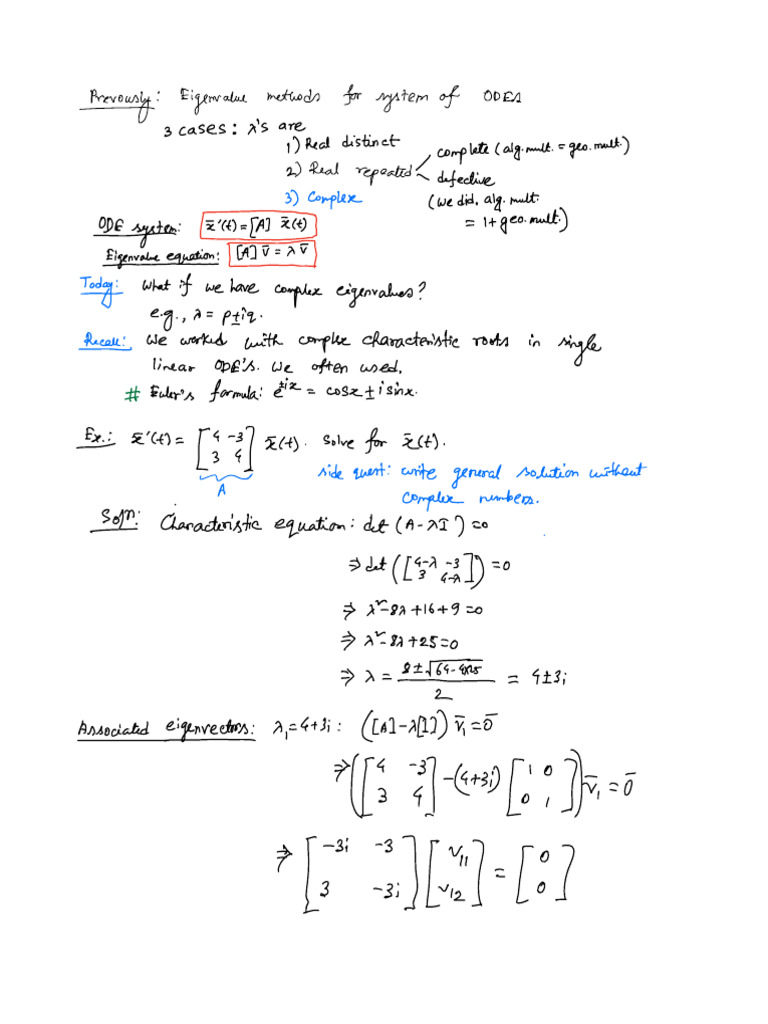 Prevously: Eigenvalue methods for system of ODEs
3 cases: λ's are
1) Real distinct
2) Real repeated
complete (alg. mult. = geo. mult.)
defective
(we did, alg. mult.
= 1 + geo. mult.)
3) Complex
ODE system: x̄'(t) = [A] x̄(t)
Eigenvalue equation: [A] v̄ = λ v̄
Today: What if we have complex eigenvalues?
e.g., λ = p ± iq.
Recall: We worked with complex characteristic roots in single
linear ODE's. We often used,
# Euler's formula: e^{±ix} = cosx ± i sinx.
Ex.: x̄'(t) = [4 -3; 3 4] x̄(t). Solve for x̄(t).
A
side quest: write general solution without
complex numbers.
Soln: Characteristic equation: det (A - λI) = 0
⇒ det ([4-λ -3; 3 4-λ]) = 0
⇒ λ² - 8λ + 16 + 9 = 0
⇒ λ² - 8λ + 25 = 0
⇒ λ = (8 ± √(64 - 4×25)) / 2 = 4 ± 3i
Associated eigenvectors: λ₁ = 4+3i: ([A] - λ[I]) v̄₁ = 0̄
⇒ ([4 -3; 3 4] - (4+3i) [1 0; 0 1]) v̄₁ = 0̄
⇒ [-3i -3; 3 -3i] [v₁₁; v₁₂] = [0; 0]